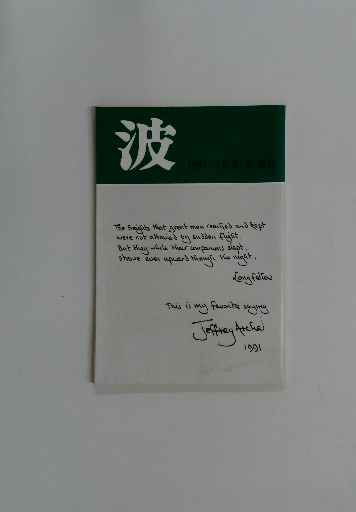 波
月号 新潮社
The heights that great men reached and kept
were not attained by sudden flight.
But they while their companions slept,
strove ever upward through the night.
Longfellow
This is my favorite saying
Jeffrey Archer
1991